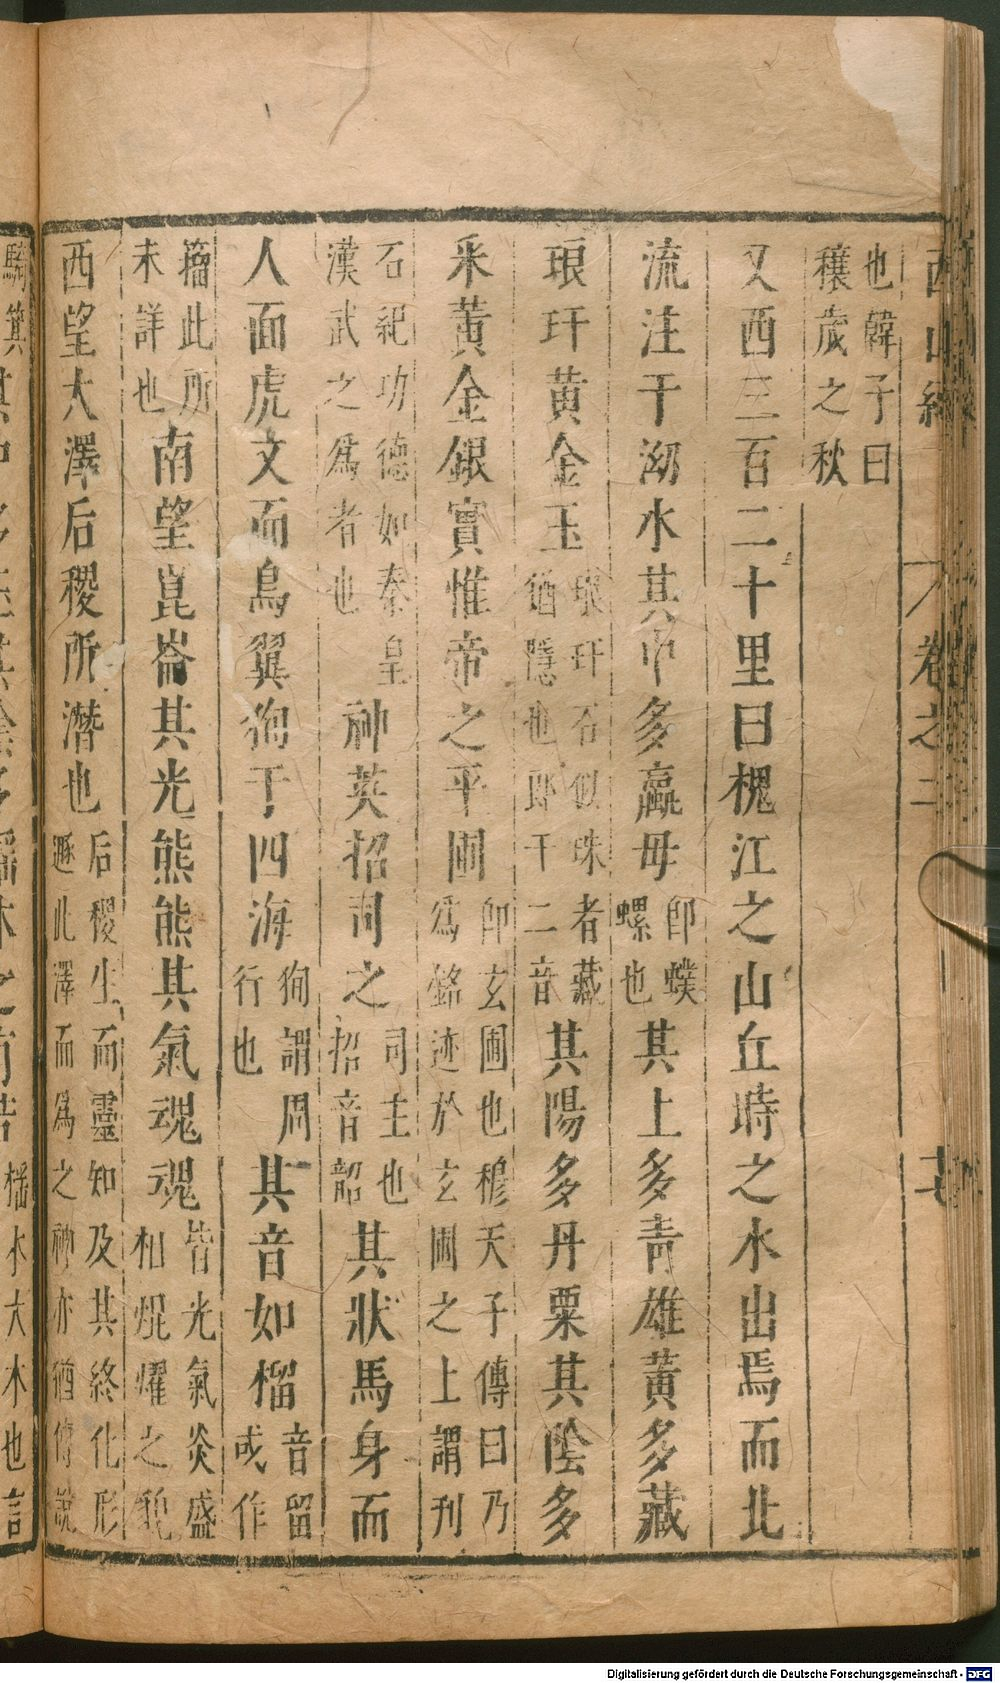 西山經 卷之二
也韓子曰
穰歲之秋
又西三百二十里曰槐江之山丘時之水出焉而北
流注于泑水其中多蠃母
卽蟔
螺也
其上多靑雄黃多藏
琅玕黃金玉
琅玕石似珠者藏
猶隱也郎干二音
其陽多丹粟其陰多
采黃金銀實惟帝之平圃
卽玄圃也穆天子傳曰乃
爲銘迹於玄圃之上謂刊
石紀功德如秦皇
漢武之爲者也
神英招司之
司主也
招音韶
其狀馬身而
人面虎文而鳥翼狥于四海
狥謂周
行也
其音如榴
音留
或作
㨨此所
未詳也
南望崑崙其光熊熊其氣魂魂
皆光氣炎盛
相焜燿之貌
西望大澤后稷所潛也
后稷生而靈知及其終化形
遯此澤而爲之神亦猶傅說
騎箕
榣木大木也言
Digitalisierung gefördert durch die Deutsche Forschungsgemeinschaft - DFG